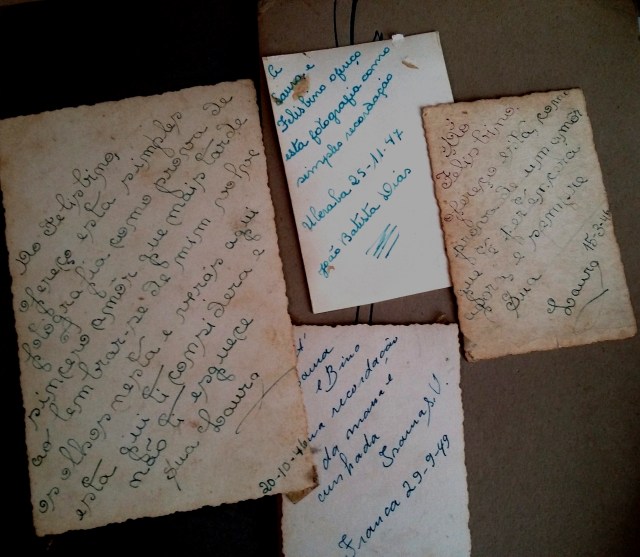 Ao Felisbino,
ofereço esta simples
fotografia como prova de
sincero amôr que mais tarde
ao lembrar-se de mim volve
os olhos nesta e verás aqui
esta qui ti considera e
não ti esquece
Sua Laura
20-10-46
A
Laura e
Felisbino ofereço
esta fotografia como
simples recordação
Uberaba 25-11-47
João Batista Dias
Ao
Felisbino.
ofereço esta como
prova de um amor
que é
e sempre
Sua
Laura 15-3-4
e Bino
uma recordação
da mana e
cunhada
Franca 29-9-49